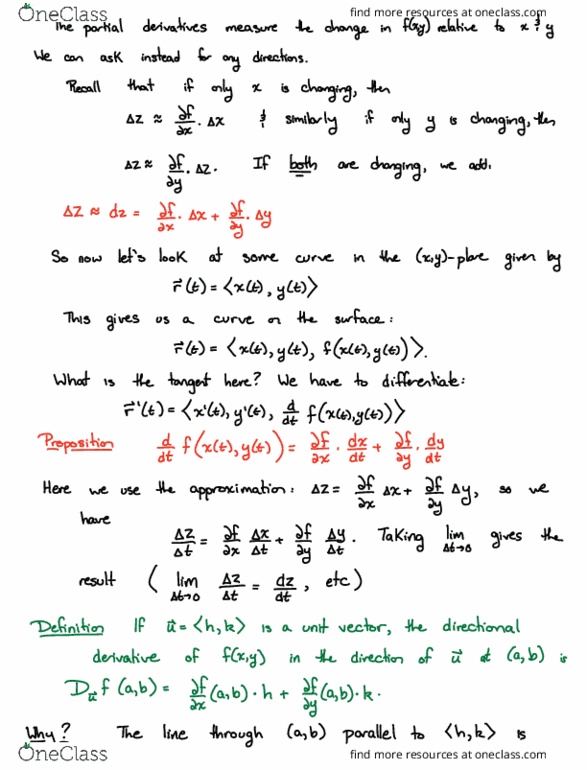 OneClass find more resources at oneclass.com
The partial derivatives measure the change in f(x,y) relative to x & y
We can ask instead for any directions.
Recall that if only x is changing, then
Δz ≈ ∂f/∂x · Δx & similarly if only y is changing, then
Δz ≈ ∂f/∂y · Δz. If both are changing, we add:
Δz ≈ dz = ∂f/∂x · Δx + ∂f/∂y · Δy
So now let's look at some curve in the (x,y)-plane given by
r⃗(t) = ⟨x(t), y(t)⟩
This gives us a curve on the surface:
r⃗(t) = ⟨x(t), y(t), f(x(t), y(t))⟩.
What is the tangent here? We have to differentiate:
r⃗'(t) = ⟨x'(t), y'(t), d/dt f(x(t), y(t))⟩
Proposition d/dt f(x(t), y(t)) = ∂f/∂x · dx/dt + ∂f/∂y · dy/dt
Here we use the approximation: Δz = ∂f/∂x Δx + ∂f/∂y Δy, so we
have
Δz/Δt = ∂f/∂x Δx/Δt + ∂f/∂y Δy/Δt. Taking lim Δt→0 gives the
result (lim Δt→0 Δz/Δt = dz/dt, etc)
Definition If u⃗ = ⟨h, k⟩ is a unit vector, the directional
derivative of f(x,y) in the direction of u⃗ at (a,b) is
D_u⃗ f(a,b) = ∂f/∂x (a,b) · h + ∂f/∂y (a,b) · k.
Why? The line through (a,b) parallel to ⟨h,k⟩ is
OneClass find more resources at oneclass.com